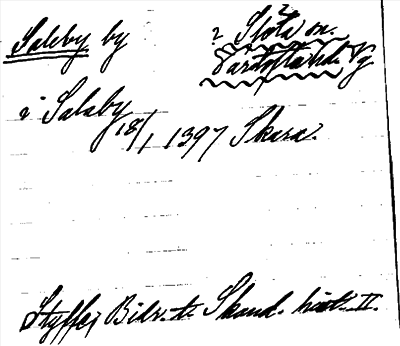 Saleby by ? Slöta sn.
Vartofta hd. Vg
i Salaby
18/1 1397 Skara.
Styffe, Bidr. t. Skand. hist. II.